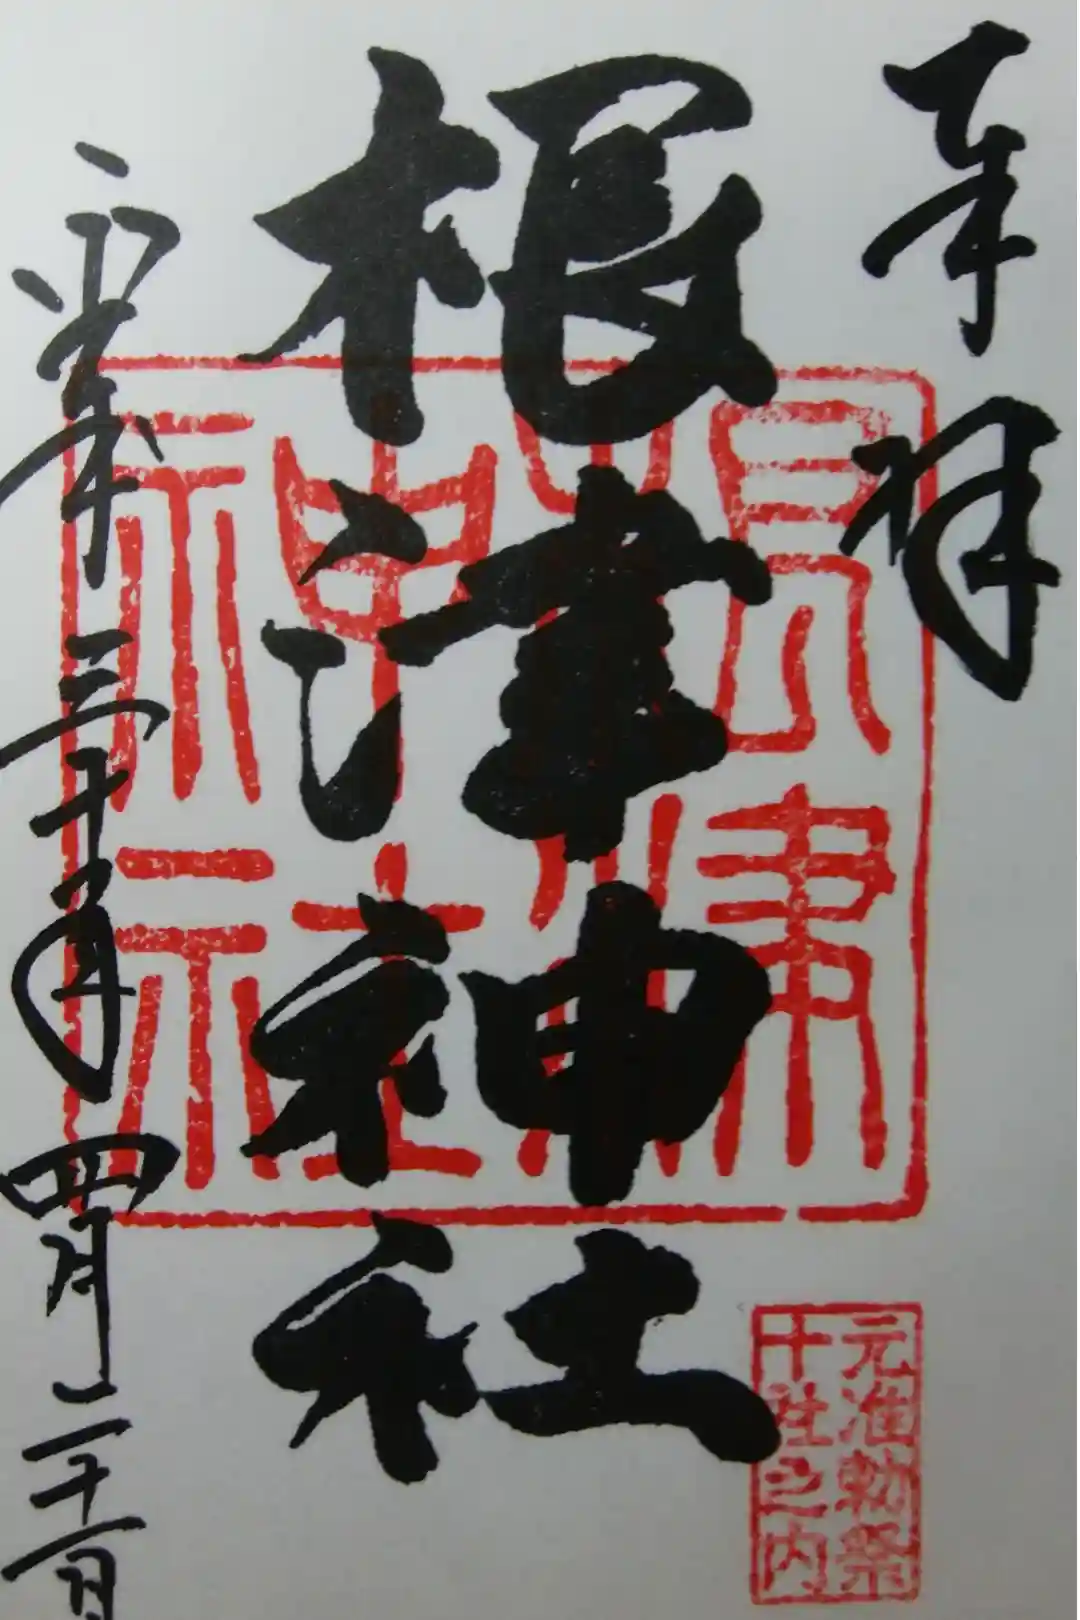 奉拝
根津神社
根津神社
元准勅祭
十社之内
平成三十一年四月二十一日